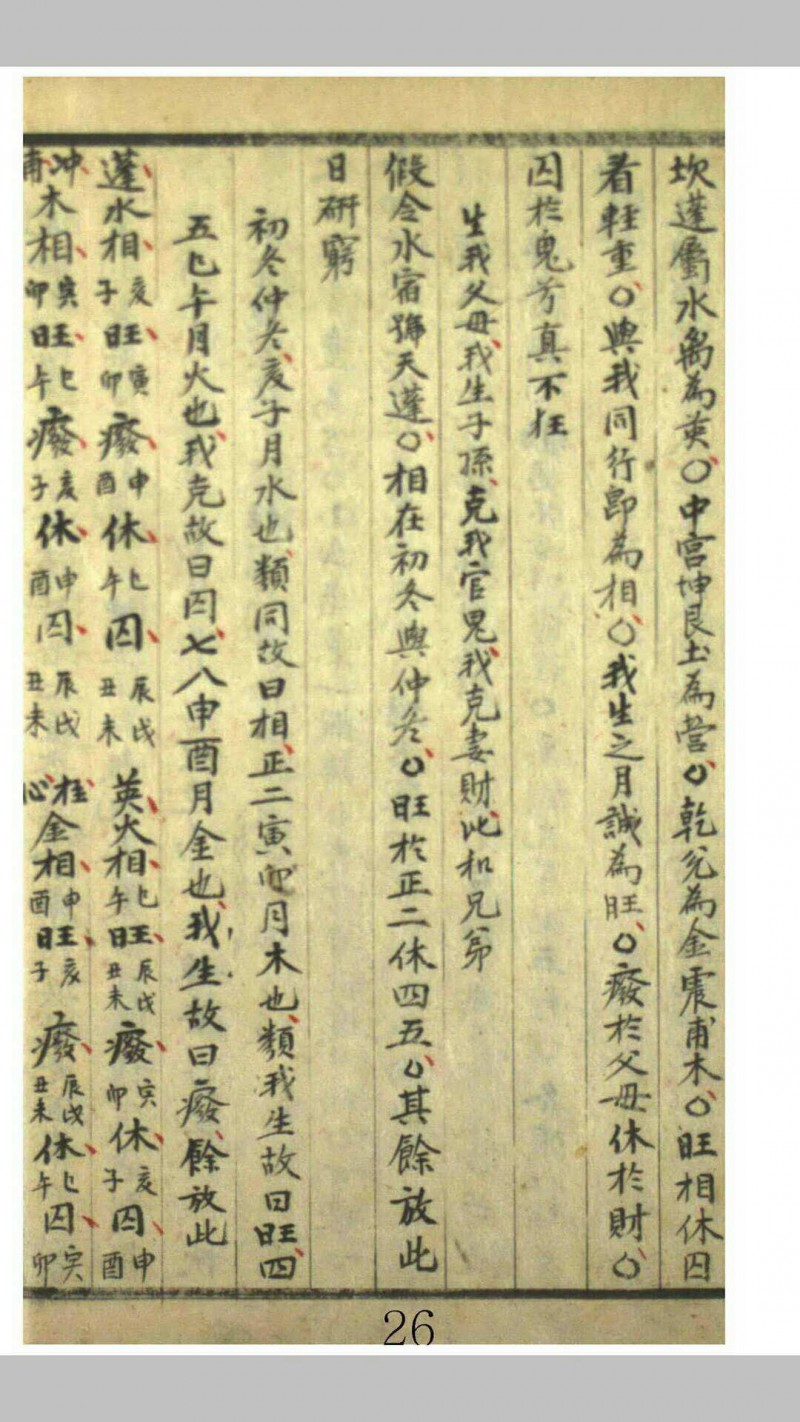 坎蓬屬水离為英○中宮坤艮土為营○乾兌為金震甫木○旺相休囚
看輕重○與我同行即為相○我生之月誠為旺○癈於父母休於財○
囚於鬼兮真不枉
生我父母我生子孫克我官鬼我克妻財比和兄弟
假令水宿號天蓬○相在初冬與仲冬○旺於正二休四五○其餘放此
日研窮
初冬仲冬亥子月水也類同故曰相正二寅卯月木也類我生故曰旺四
五巳午月火也我克故曰囚七八申酉月金也我生故曰癈餘放此
蓬水相亥子旺寅卯癈申酉休巳午囚辰戌丑未 英火相巳午旺辰戌丑未癈寅卯休亥子囚申酉
冲甫木相寅卯旺巳午癈亥子休申酉囚辰戌丑未 柱心金相申酉旺亥子癈辰戌丑未休巳午囚寅卯
26